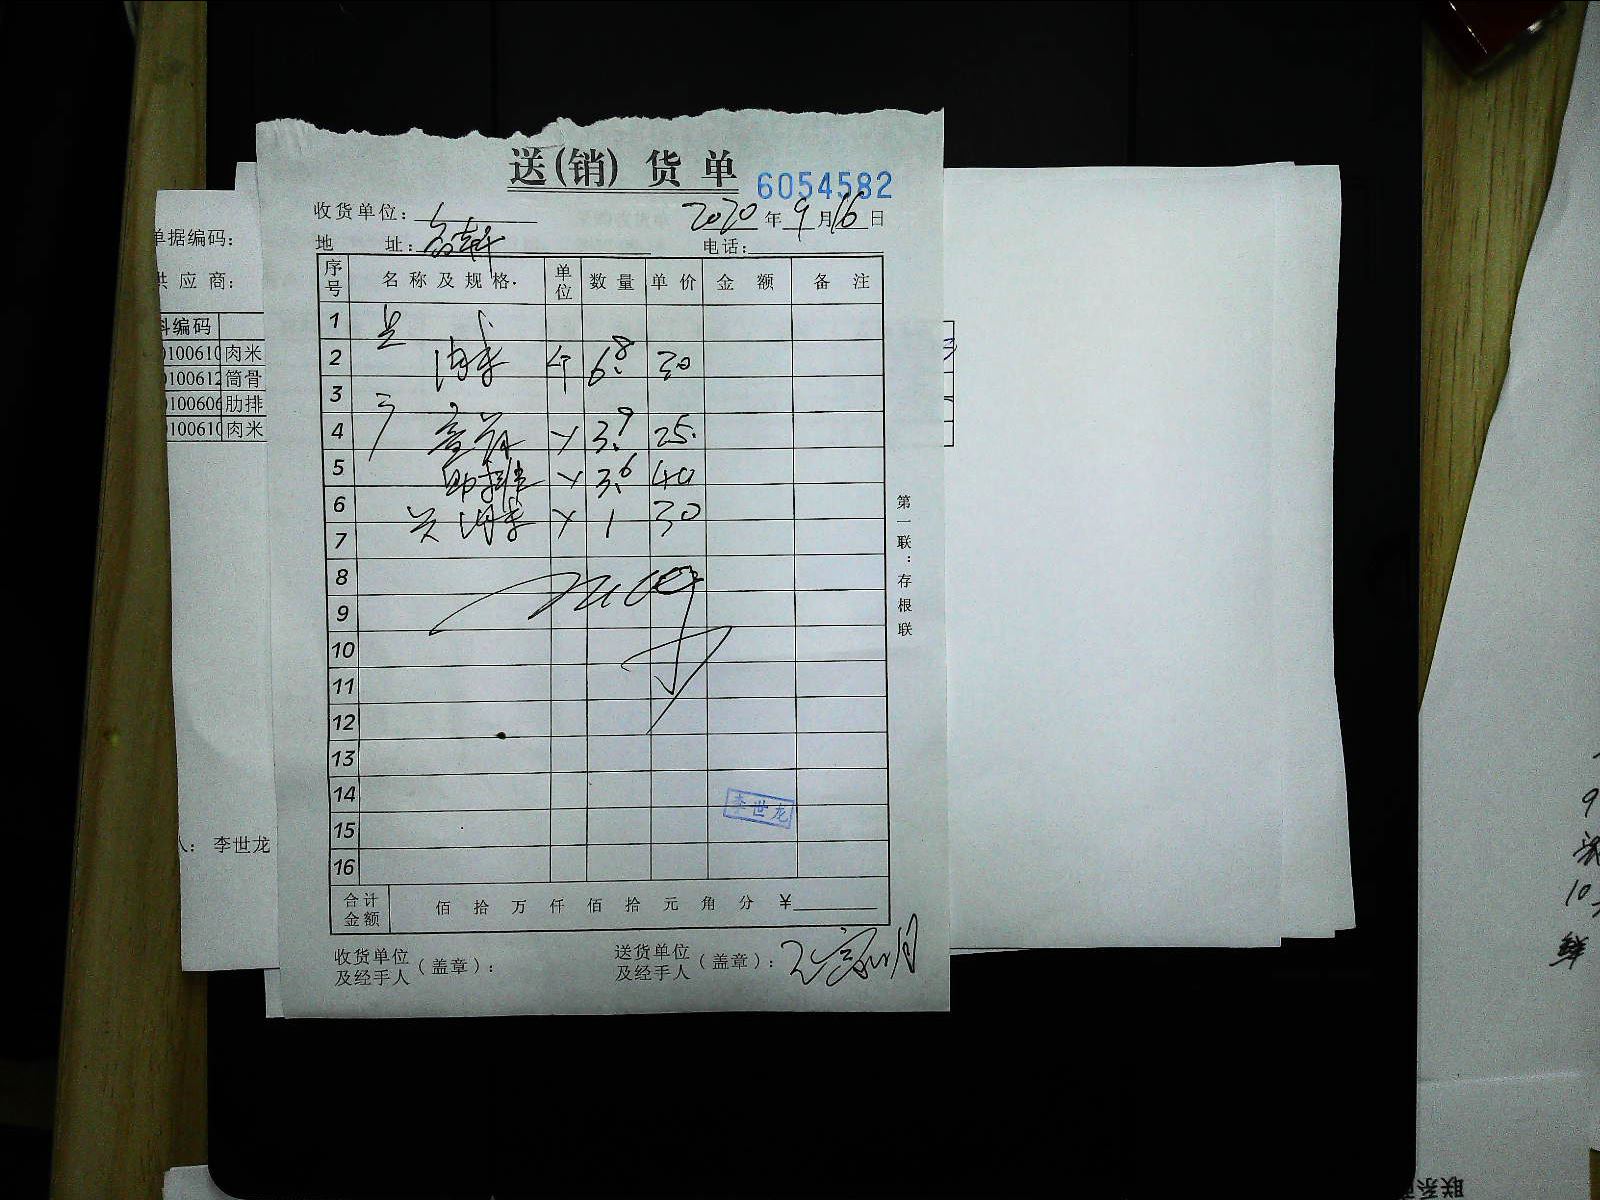 送(销) 货 单
6054582
收货单位:
2020 年 9 月 16 日
地 址:
电话:
序号 名称及规格. 单位 数量 单价 金 额 备 注
1
2 肉米 斤 6.8 30
3
4 筒骨 3.9 25.
5 肋排 3.6 40
6 肉米 1 30
7
8
9
10
11
12
13
14
15
16
李世龙
合计金额 佰 拾 万 仟 佰 拾 元 角 分 ¥
收货单位及经手人(盖章):
送货单位及经手人(盖章):
第一联:存根联
单据编码:
供 应 商:
料编码
0100610 肉米
0100612 筒骨
0100606 肋排
0100610 肉米
人: 李世龙
9
10
联系